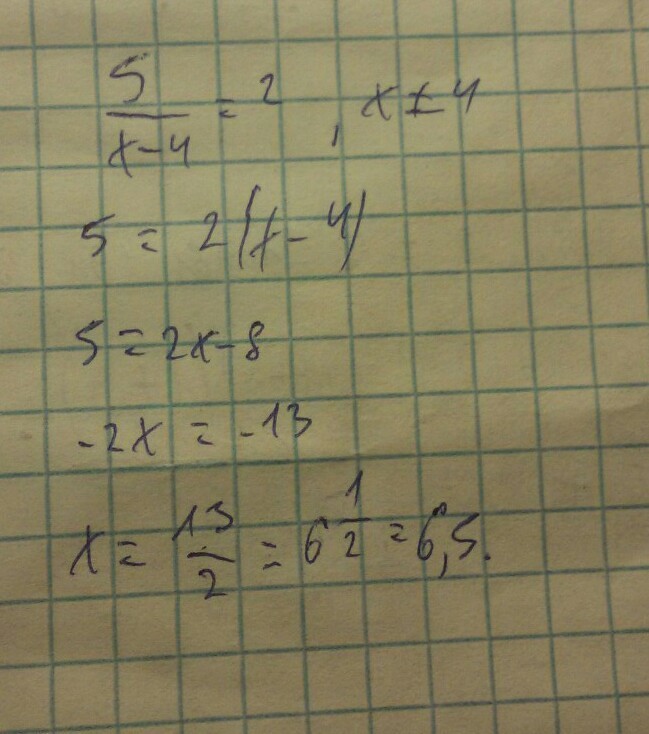 5/(x-4) = 2, x ≠ 4
5 = 2(x-4)
5 = 2x-8
-2x = -13
x = 13/2 = 6 1/2 = 6,5.